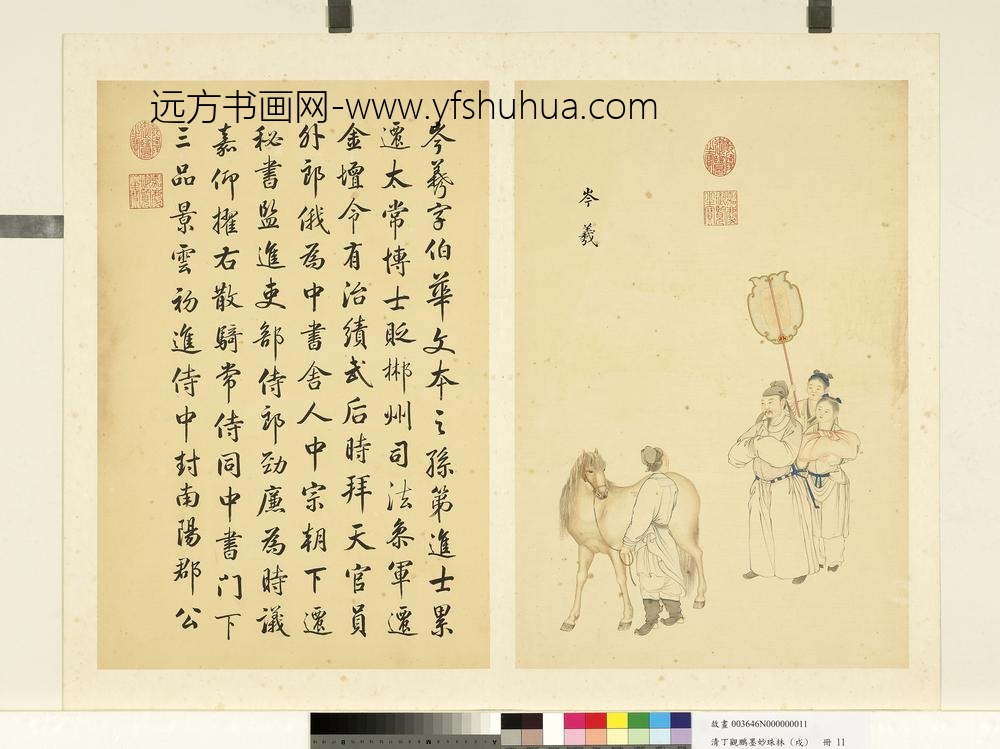 远方书画网-www.yfshuhua.com
岑羲
岑羲字伯華文本之孫第進士累
遷太常博士貶郴州司法叅軍遷
金壇令有治績武后時拜天官員
外郎俄為中書舍人中宗朝下遷
秘書監進吏部侍郎劲廉為時議
嘉仰擢右散騎常侍同中書門下
三品景雲初進侍中封南陽郡公
故畫 003646N000000011
清丁觀鵬墨妙珠林（戌） 冊 11